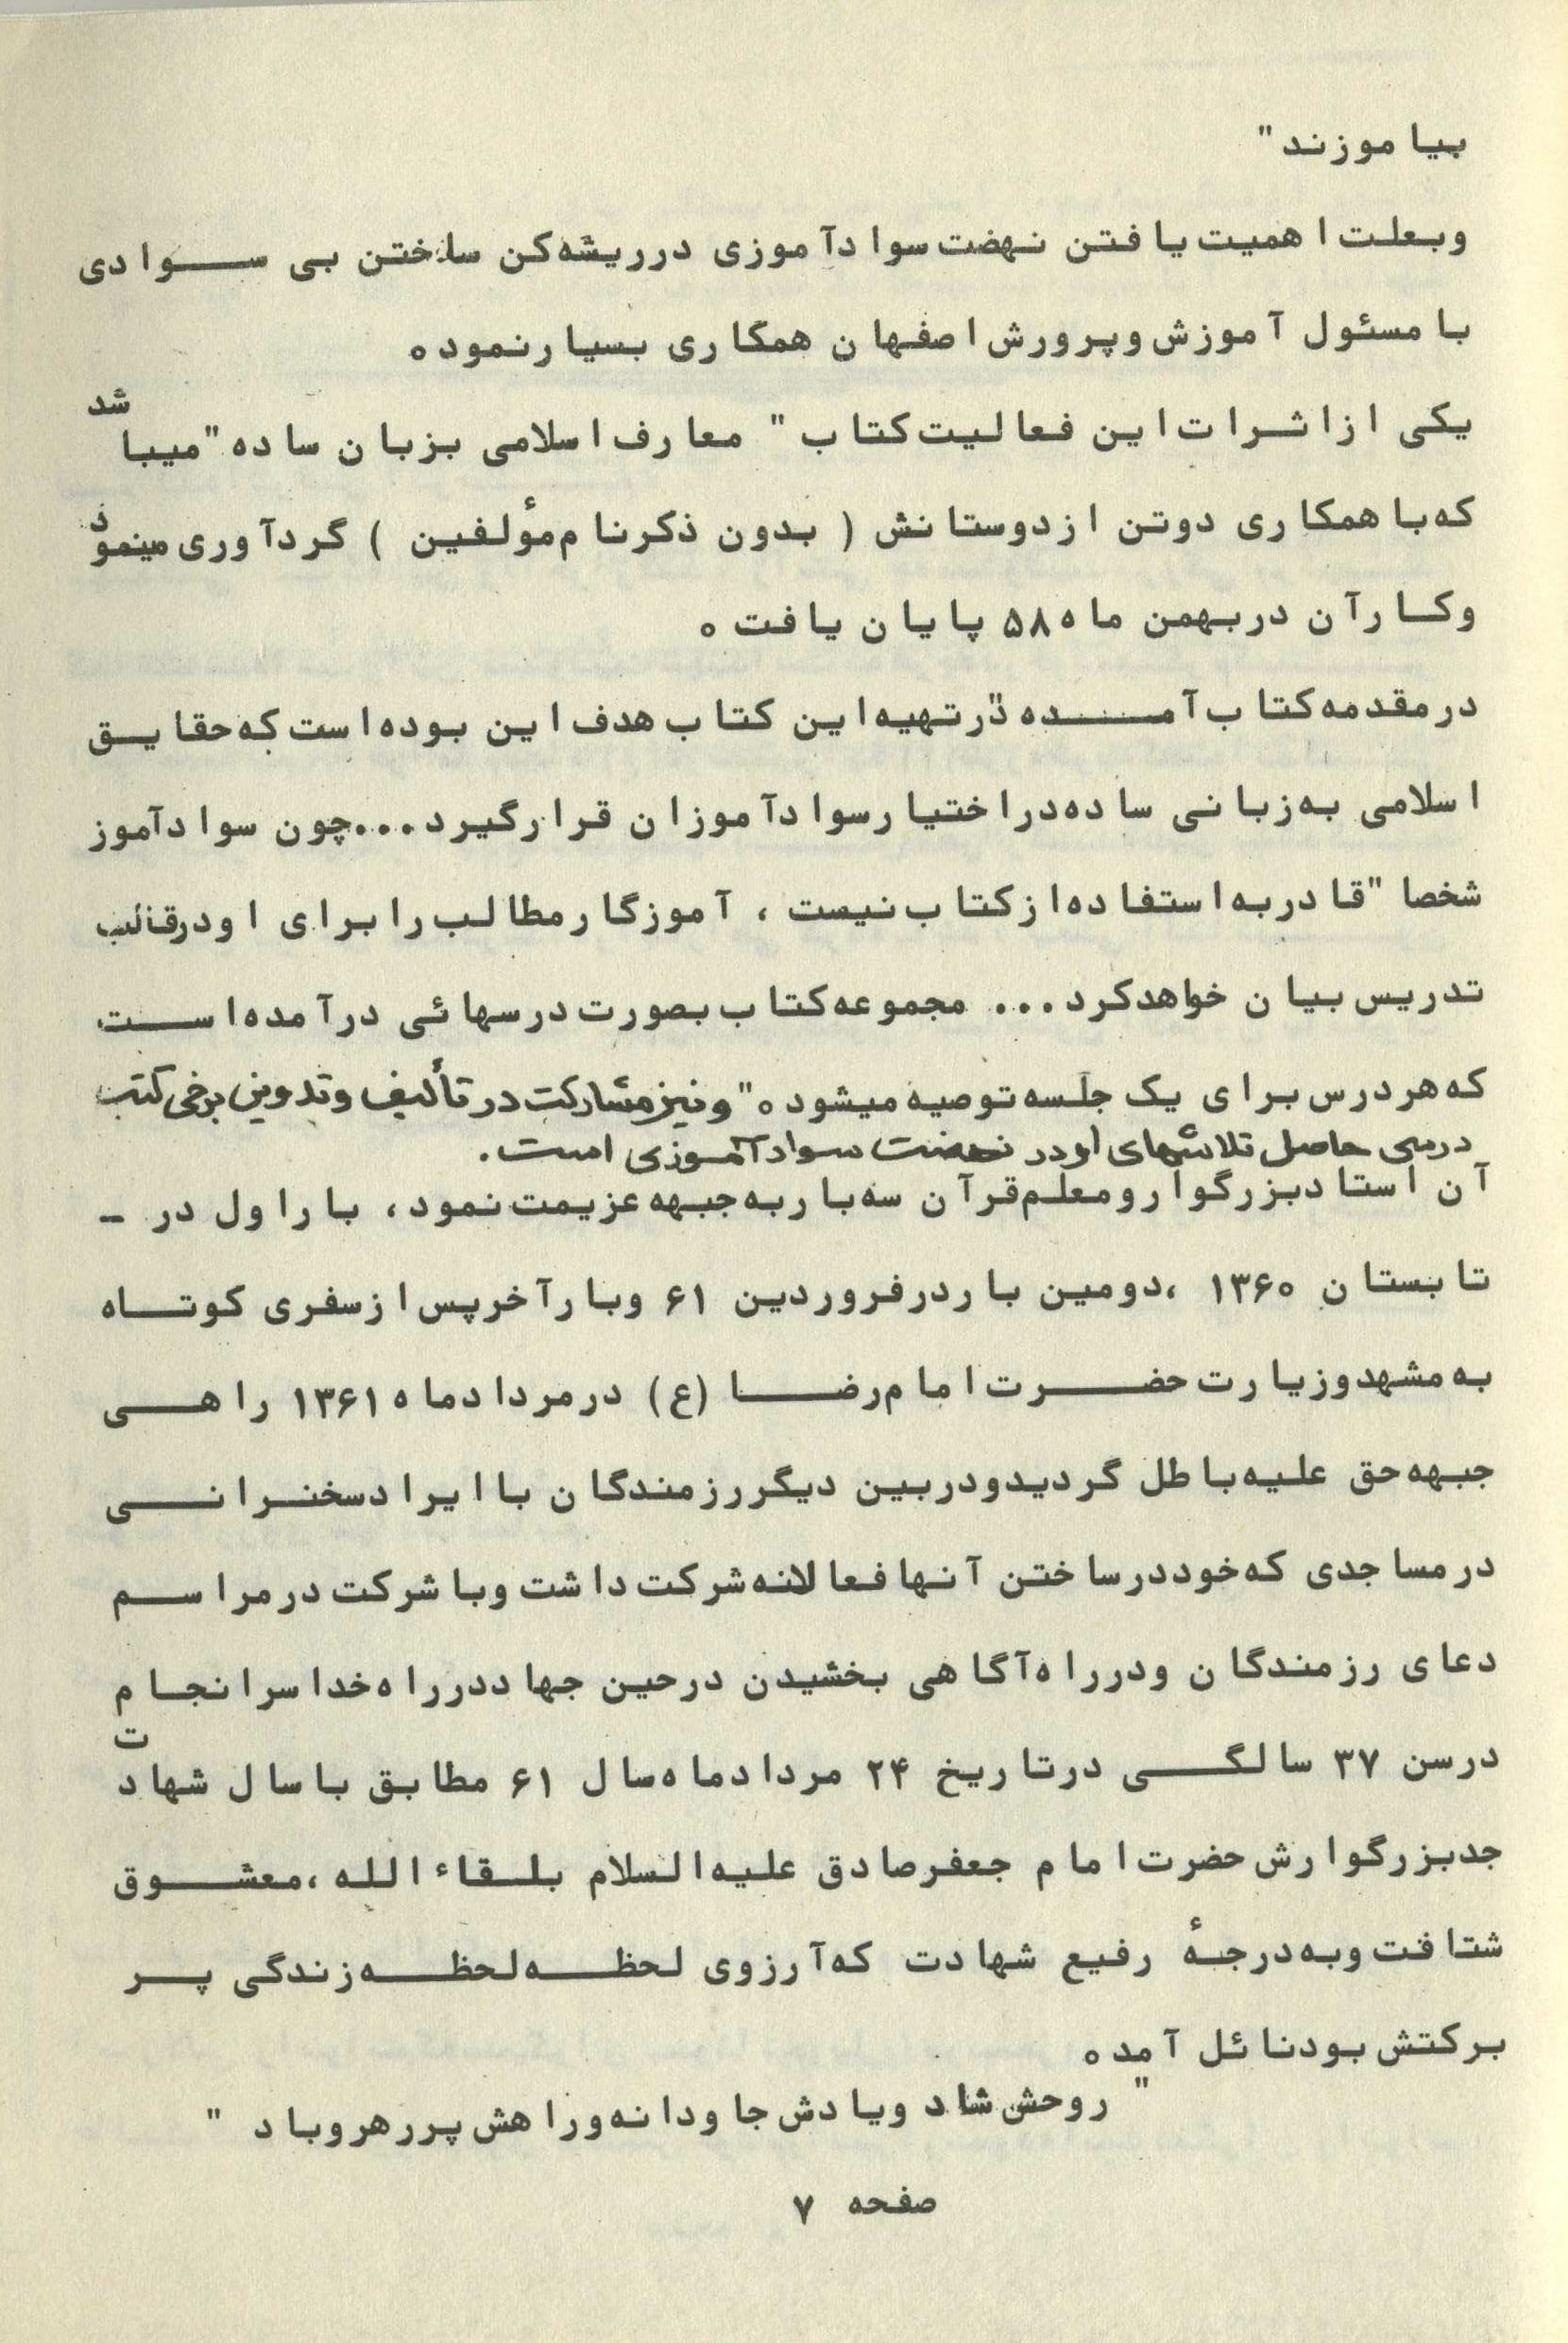 بیاموزند"
وبعلت اهمیت یافتن نهضت سوادآموزی درریشه‌کن ساختن بی سـوادی
با مسئول آموزش وپرورش اصفهان همکاری بسیارنمود.
یکی ازاثرات این فعالیت کتاب " معارف اسلامی بزبان ساده "میباشد
که با همکاری دوتن ازدوستانش ( بدون ذکرنام مؤلفین ) گردآوری مینمود
وکارآن دربهمن ماه ۵۸ پایان یافت .
درمقدمه کتاب آمـده "درتهیه این کتاب هدف این بوده است که حقایق
اسلامی به زبانی ساده دراختیارسوادآموزان قرارگیرد...چون سوادآموز
شخصا "قادربه استفاده ازکتاب نیست ، آموزگارمطالب را برای اودرقالب
تدریس بیان خواهدکرد... مجموعه کتاب بصورت درسهائی درآمده اسـت
که هردرس برای یک جلسه توصیه میشود ." ونیز مشارکت در تألیف وتدوین برخی کتب
درسی حاصل تلاشهای او در نهضت سواد آموزی است.
آن استادبزرگوارومعلم قرآن سه باربه جبهه عزیمت نمود، باراول در -
تابستان ۱۳۶۰ ،دومین باردرفروردین ۶۱ وبارآخرپس ازسفری کوتـاه
به مشهدوزیارت حضـرت امام رضـا (ع) درمردادماه ۱۳۶۱ راهـی
جبهه حق علیه باطل گردیدودربین دیگررزمندگان با ایرادسخنرانـی
درمساجدی که خوددرساختن آنها فعالانه شرکت داشت وبا شرکت درمراسـم
دعای رزمندگان ودرراه آگاهی بخشیدن درحین جهاددرراه خدا سرانجام
درسن ۳۷ سالگـی درتاریخ ۲۴ مردادماه سال ۶۱ مطابق با سال شهادت
جدبزرگوارش حضرت امام جعفرصادق علیه السلام بلقاء الله ،معشـوق
شتافت وبه درجهٔ رفیع شهادت که آرزوی لحظـه لحظـه زندگی پـر
برکتش بودنائل آمد .
" روحش شاد ویادش جاودانه وراهش پررهروباد "
صفحه ۷